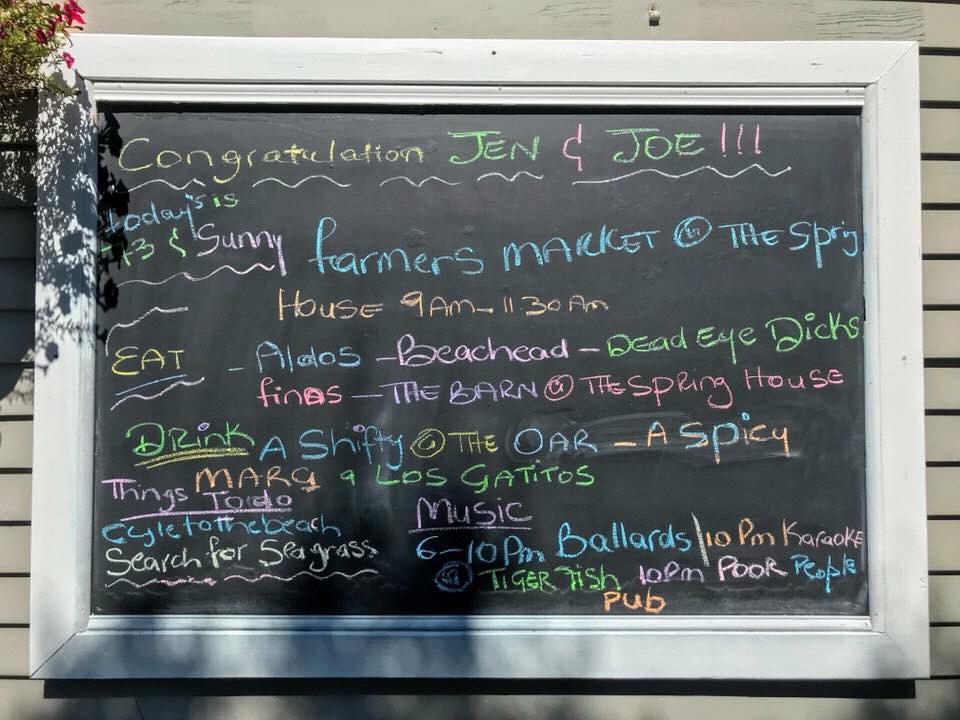 Congratulation JEN & JOE !!!
today's is
73 & Sunny
farmers MARKET @ THE Spring
House 9AM-11:30AM
EAT - Aldos - Beachead - Dead Eye Dicks
finas - THE BARN @ THE SPRING HOUSE
DRINK A Shifty @ THE OAR - A Spicy
MARG @ LOS GATITOS
Things To do
Cycle to the beach
Search for Seagrass
Music
6-10 Pm Ballards | 10 Pm Karaoke
@ TIGER Fish 10pm POOR People
Pub